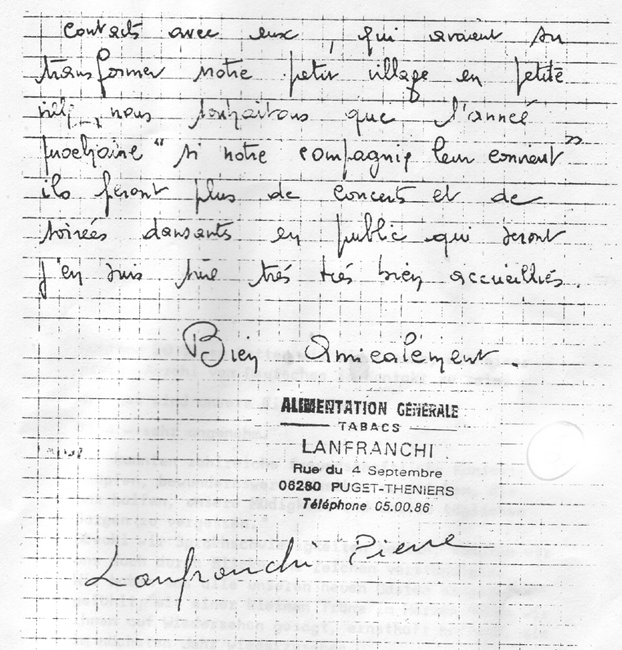 contacts avec eux, qui avaient su
transformer notre petit village en petite
ville, nous souhaitons que l'année
prochaine "si notre compagnie leur convient"
ils feront plus de concerts et de
soirées dansants en public qui seront
j'en suis sûre trés trés bien accueillies.
Bien Amicalement.
ALIMENTATION GENERALE
TABACS
LANFRANCHI
Rue du 4 Septembre
06260 PUGET-THENIERS
Téléphone 05.00.86
Lanfranchi Pierre